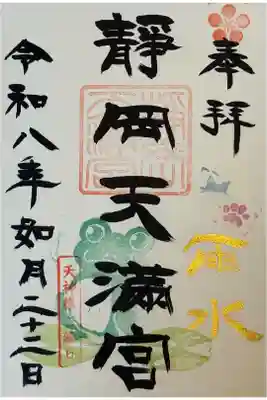 奉拝
雨水
静岡天満宮
令和八年如月二十二日